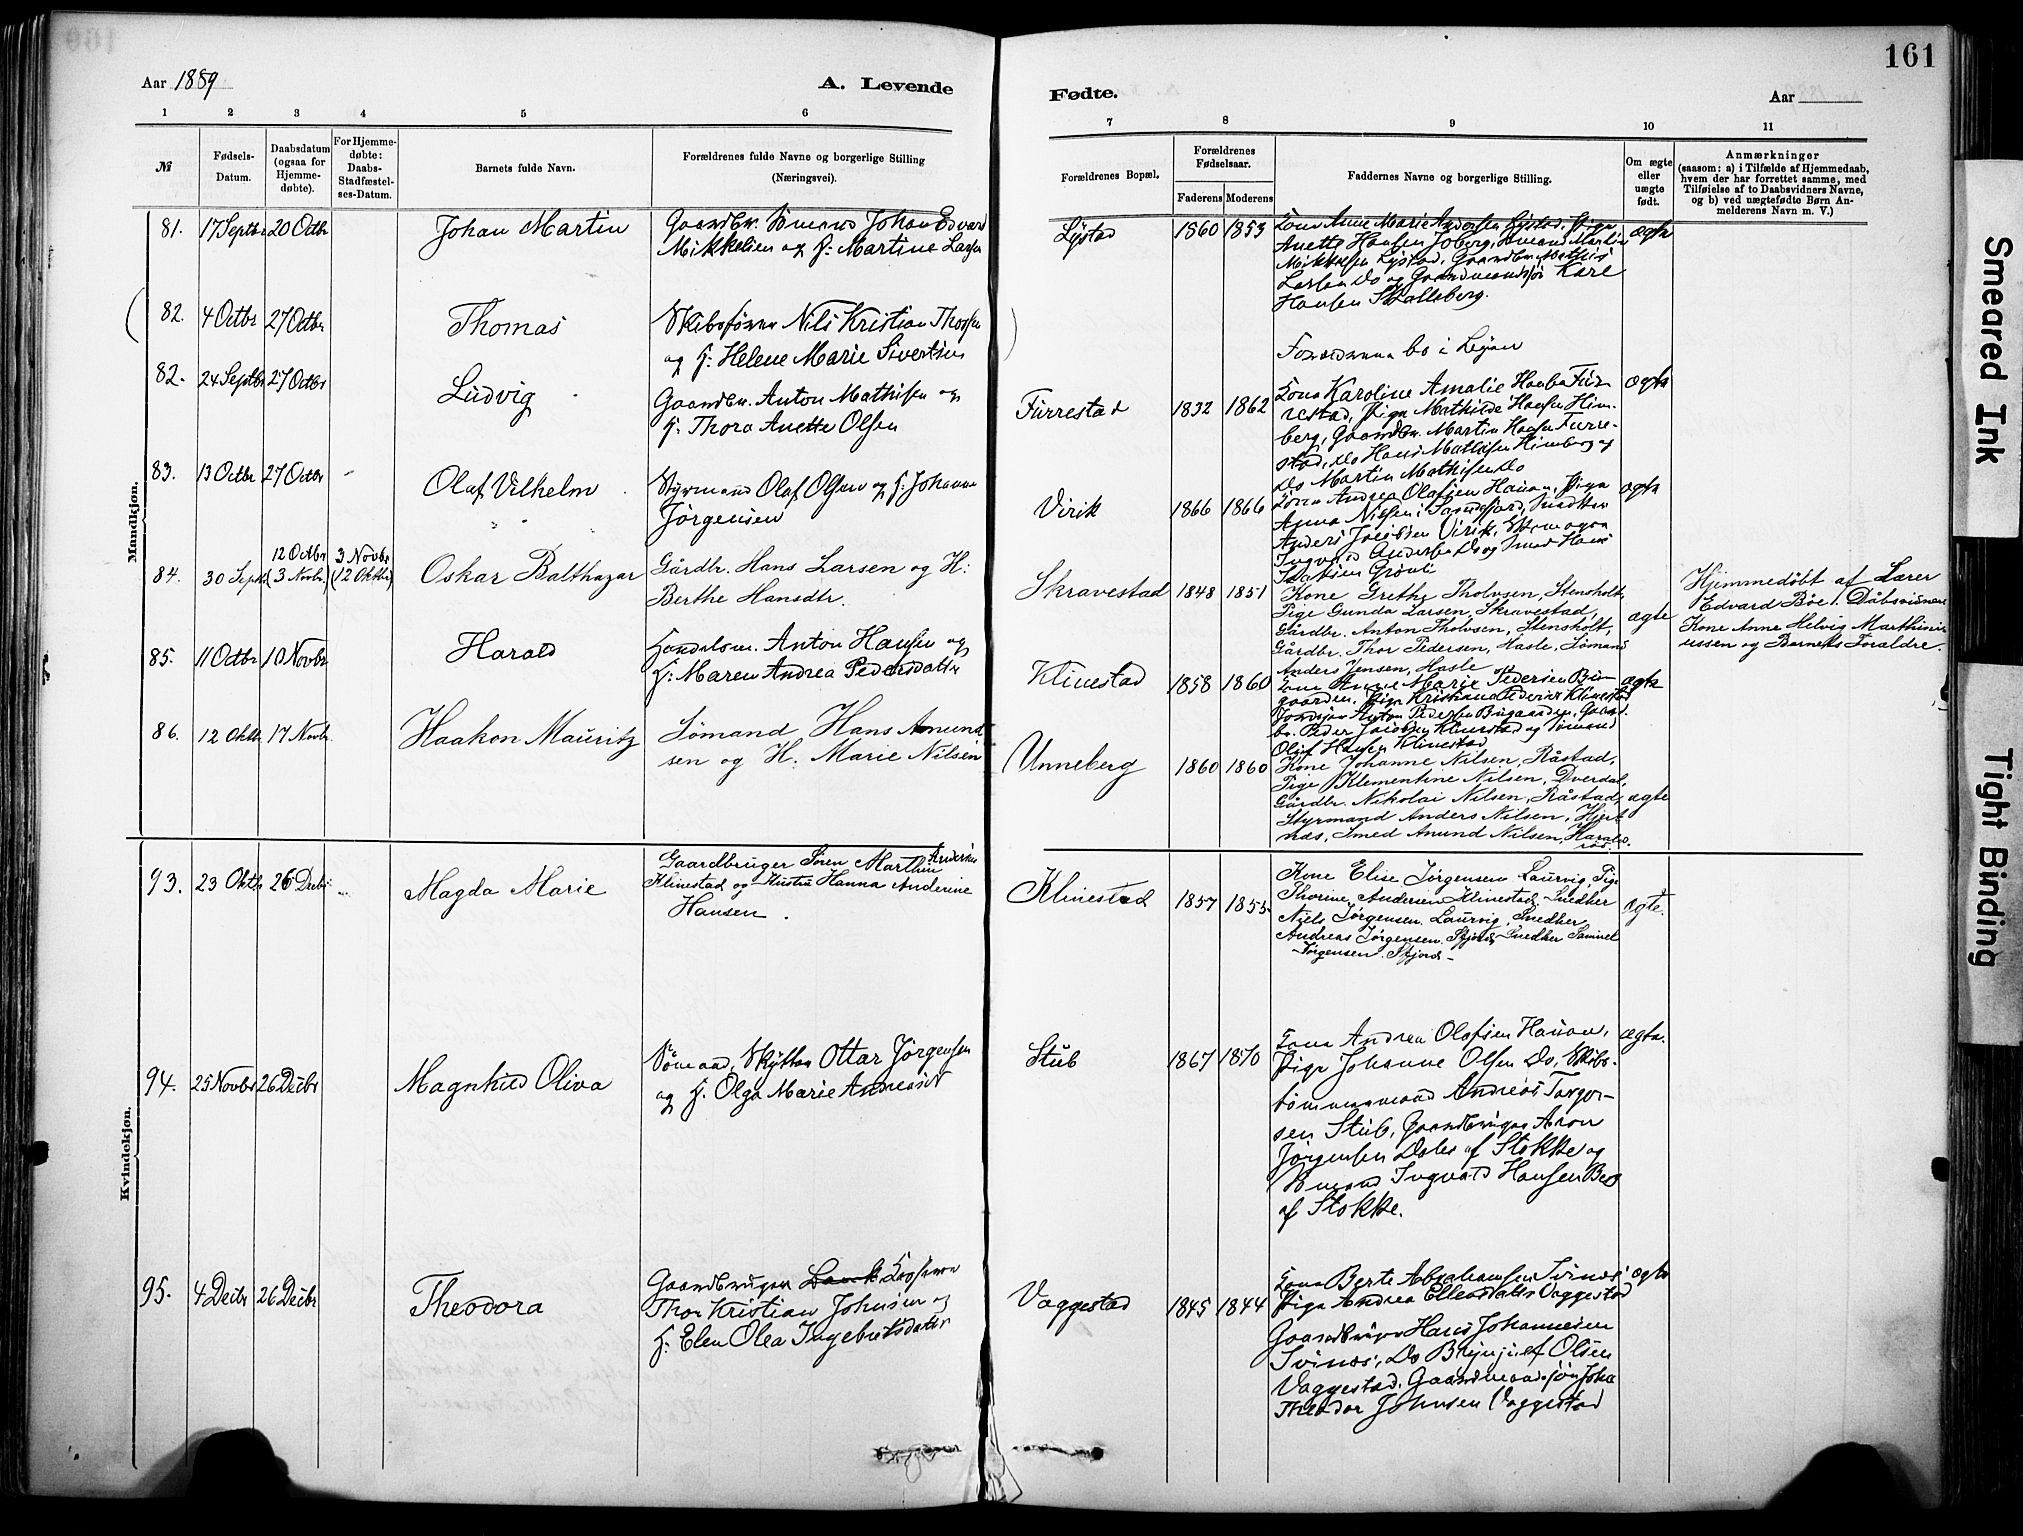 Aar 1889
A. Levende
Fødte.
Aar
161
1 2 3 4 5 6 7 8 9 10 11
№
Fødsels-
Datum.
Daabsdatum
(ogsaa for
Hjemme-
døbte).
For Hjemme-
døbte:
Daabs-
Stadfæstel-
ses-Datum.
Barnets fulde Navn.
Forældrenes fulde Navne og borgerlige Stilling
(Næringsvei).
Forældrenes Bopæl.
Forældrenes
Fødselsaar.
Faderens Moderens
Faddernes Navne og borgerlige Stilling.
Om ægte
eller
uægte
født.
Anmærkninger
(saasom: a) i Tilfælde af Hjemmedaab,
hvem der har forrettet samme, med
Tilføielse af to Daabsvidners Navne,
og b) ved uægtefødte Børn An-
melderens Navn m. V.)
Mandkjøn.
81. 17 Septbr 20 Octbr
Johan Martin
Gaardbr. Sømand Johan Edvard
Mikkelsen og H: Martine Larsen
Lystad
1860 1853
Kone Anne Marie Andersen Lystad, Pige
Anette Hansen Joberg, Sømand Martin
Mikkelsen Lystad, Gaardbr. Mathis
Larsen Do og Gaardmandssøn Karl
Hansen Skalleberg.
ægte
82. 4 Octbr 27 Octbr
Thomas
Skibsfører Nils Kristian Thorsen
og H: Helene Marie Sivertsen
Forældrene bo i
82. 24 Septbr 27 Octbr
Ludvig
Gaardbr. Anton Mathisen og
H: Thora Anette Olsen
Furrestad
1832 1862
Kone Karoline Amalie Fur-
restad, Pige Mathilde Hansen Him-
berg, Gaardbr. Martin Hansen Furre-
stad, Do Hans Mathisen Himberg og
Do Martin Mathisen Do
ægte
83. 13 Octbr 27 Octbr
Olaf Vilhelm
Styrmand Olaf Olsen og H: Johanne
Jørgensen
Virik
1866 1866
Kone Andrea Olafsen Hauan, Pige
Anna Nilsen i Sandefjord, Snedker
Anders Jacobsen Virik,
Ingvald Andersen Do og Smed Hans
ægte
84. 30 Septbr
12 Octbr
(3 Novbr)
3 Novbr
(12 Oktbr)
Oskar Balthazar
Gårdbr. Hans Larsen og H:
Berthe Hansdtr.
Skravestad
1848 1851
Kone Grethe Tholvsen, Stensholt,
Pige Gunda Larsen, Skravestad,
Gårdbr. Anton Tholvsen, Stensholt,
Gårdbr. Thor Pedersen, Hasle, Sømand
Anders Jensen, Hasle
ægte
Hjemmedøbt af Lærer
Edvard Bøe. Dåbsvidnere
Kone Anne Helvig Marthini-
ussen og Barnets Foraldre.
85. 11 Octbr 10 Novbr
Harald
Handelsm. Anton Hansen og
H: Maren Andrea Pedersdatter
Klinestad
1858 1860
Kone Anne Marie Pedersen Bu-
gaarden, Pige Kristiana Pedersen Klinestad,
Jordejer Anton Pedersen Bugaarden, Gaard-
br. Peder Jacobsen Klinestad og Sømand
Oluf Hansen Klinestad
ægte
86. 12 Oktbr 17 Novbr
Haakon Mauritz
Sømand Hans Amund
sen og H: Marie Nilsen
Unneberg
1860 1860
Kone Johanne Nilsen, Råstad,
Pige Klementine Nilsen, Dverdal,
Gårdbr. Nikolai Nilsen, Råstad,
Styrmand Anders Nilsen, Hjert-
næs, Smed Anund Nilsen, Harals-
rød.
ægte
Kvindekjøn.
93. 23 Oktb 26 Decbr
Magda Marie
Gaardbruger Søren Marthin Andersen
Klinestad og Hustru Hanna Andrine
Hansen.
Klinestad
1857 1855
Kone Elise Jørgensen Laurvig, Pige
Thorine Andersen Klinestad, Snedker
Niels Jørgensen, Laurvig, Snedker
Andreas Jørgensen, Sfjord, Snedker Samuel
Jørgensen, Sfjord
ægte.
94. 25 Novbr 26 Decbr
Magnhild Oliva
Sømand, Skytter Ottar Jørgensen
og H: Olga Marie Andreasdt
Stub
1867 1870
Kone Andrea Olafsen Hauan,
Pige Johanne Olsen Do, Skibs-
tømmermand Andreas Torger-
sen Stub, Gaardbruger Aron
Jørgensen Dales af Stokke og
Sømand Ingvald Hansen Berg
af Stokke.
ægte.
95. 4 Decbr 26 Decbr
Theodora
Gaardbruger
Thor Kristian Johnsen og
H: Elen Olea Ingebretsdatter
Vaggestad
1845 1844
Kone Berte Abrahamsen Svines
Pige Andrea Ellensdatter Vaggestad
Gaardbruger Hans Johannesen
Svines, Do Brynjulf Olsen
Vaggestad, Gaardmandssøn Johan
Theodor Johnsen Vaggestad
ægte
Smeared Ink
Tight Binding